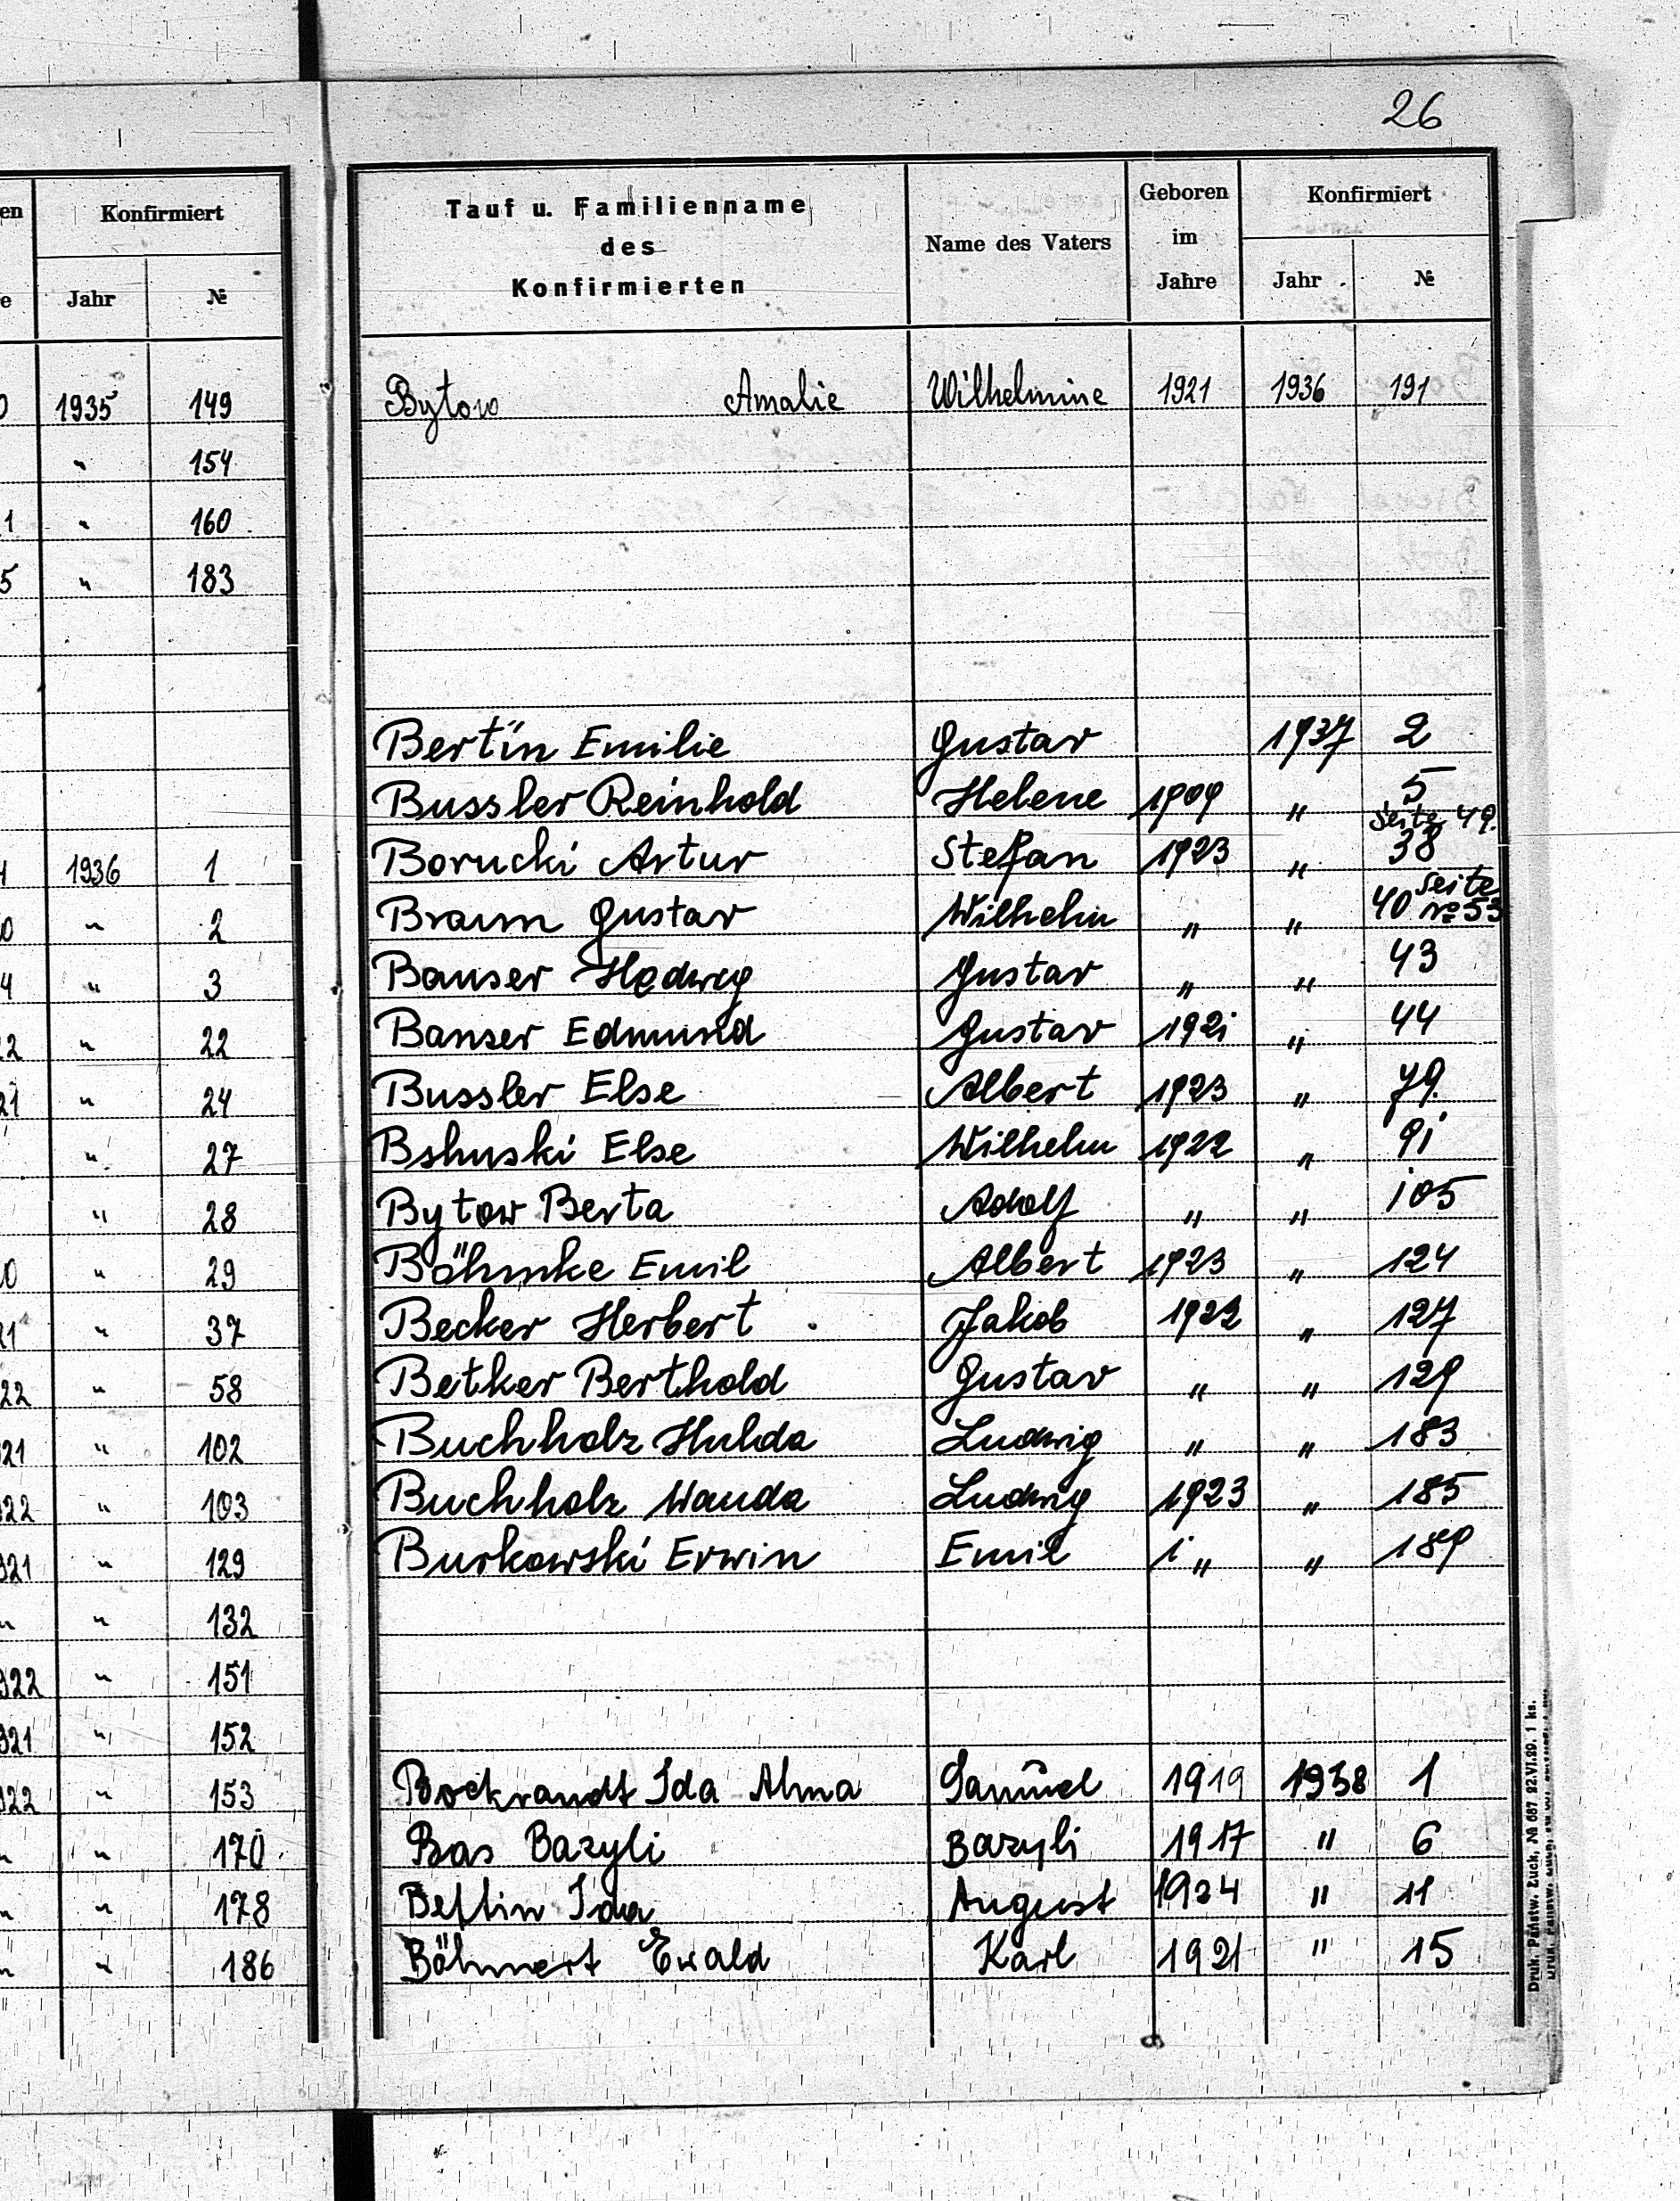 26
en Konfirmiert
e Jahr №
0 1935 149
" 154
1 " 160
5 " 183
4 1936 1
0 " 2
4 " 3
22 " 22
21 " 24
" 27
" 28
0 " 29
21 " 37
22 " 58
921 " 102
922 " 103
921 " 129
" " 132
922 " 151
921 " 152
922 " 153
" " 170
" " 178
" " 186
Tauf u. Familienname
des
Konfirmierten
Name des Vaters
Geboren
im
Jahre
Konfirmiert
Jahr №
Bytow Amalie Wilhelmine 1921 1936 191
Bertin Emilie Gustav 1937 2
Bussler Reinhold Helene 1909 " 5
Seite 49.
Borucki Artur Stefan 1923 " 38
Braun Gustav Wilhelm " " 40 Seite № 53
Banser Hedwig Gustav " " 43
Banser Edmund Gustav 1921 " 44
Bussler Else Albert 1923 " 79.
Bshuski Else Wilhelm 1922 " 91
Bytow Berta Adolf " " 105
Böhmke Emil Albert 1923 " 124
Becker Herbert Jakob 1922 " 127
Betker Berthold Gustav " " 129
Buchholz Hulda Ludwig " " 183
Buchholz Wanda Ludwig 1923 " 185
Burkowski Erwin Emil " " 189
Bockrandt Ida Alma Samuel 1919 1938 1
Bas Bazyli Bazyli 1917 " 6
Ida August 1924 " 11
Böhmert Ewald Karl 1921 " 15
Druk. Państw. Łuck, № 687 22.VI.29. 1 ks.